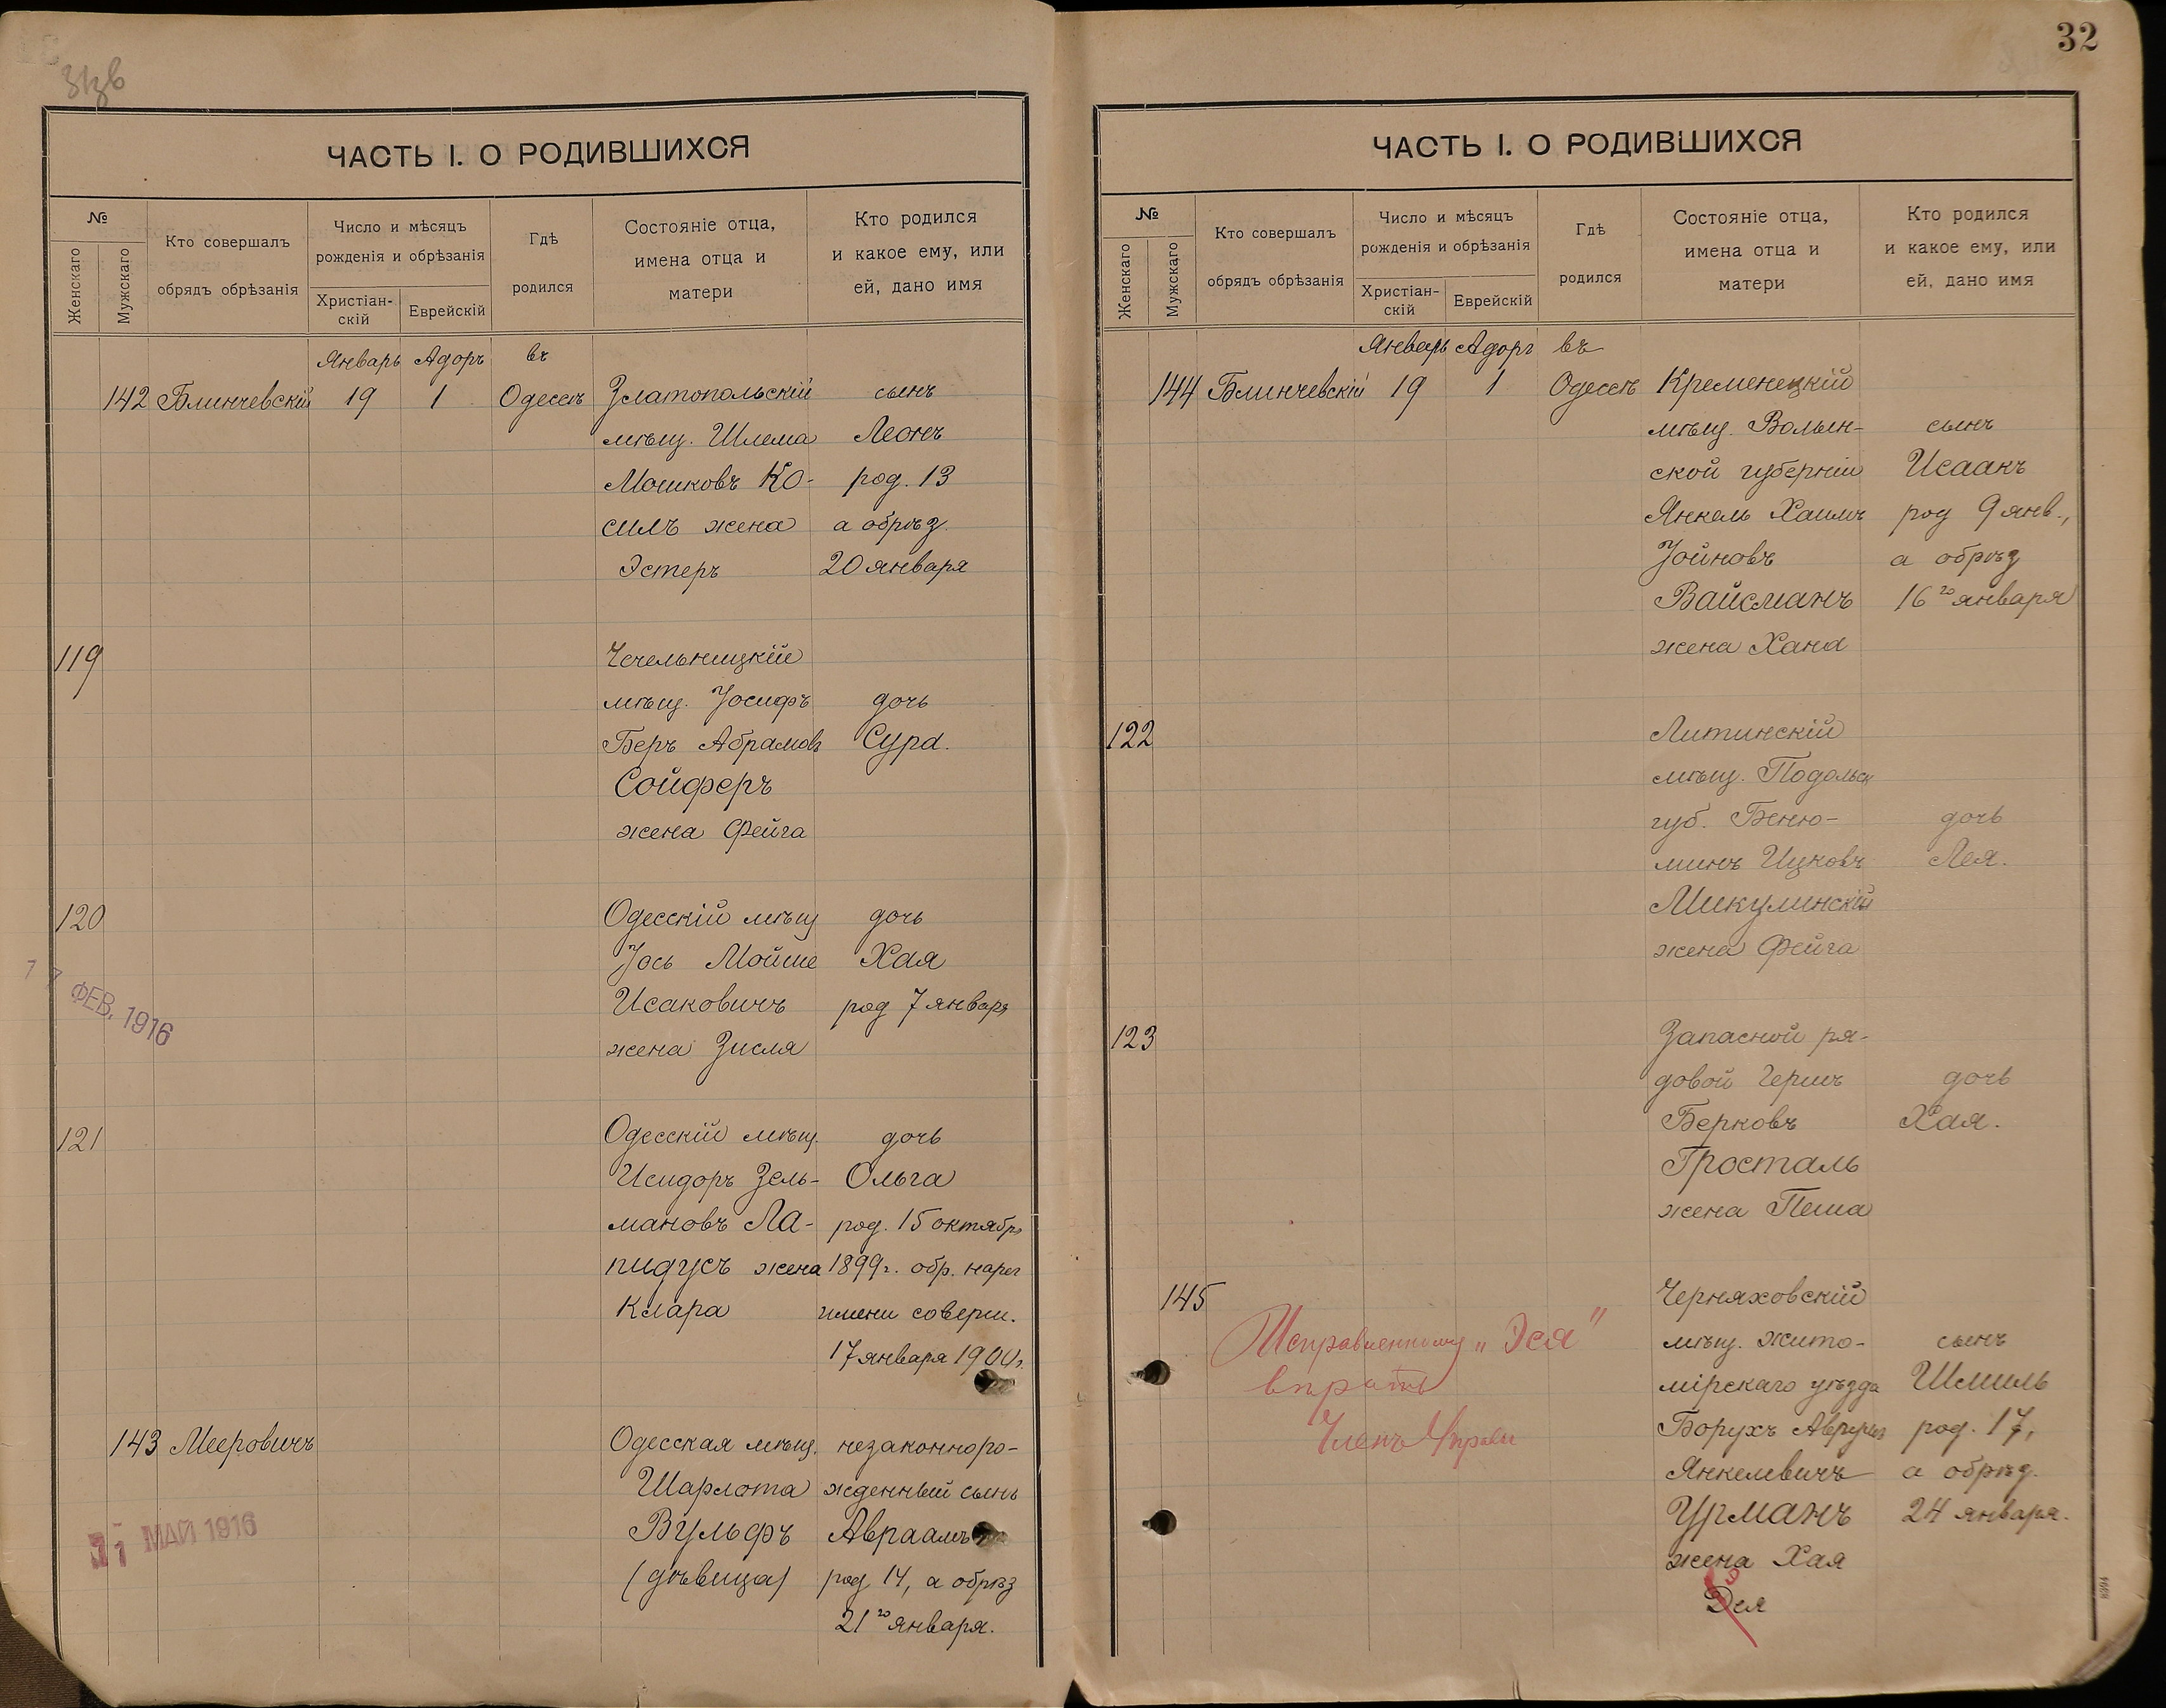 31зв
ЧАСТЬ I. О РОДИВШИХСЯ
№
Женскаго
Мужскаго
Кто совершалъ
обрядъ обрѣзанія
Число и мѣсяцъ
рожденія и обрѣзанія
Христіан-
скій
Еврейскій
Гдѣ
родился
Состояніе отца,
имена отца и
матери
Кто родился
и какое ему, или
ей, дано имя
Январь Адоръ въ
142 Блинчевскій 19 1 Одессѣ Златопольскій сынъ
мѣщ. Шлема Леонъ
Мошковъ Ко- род. 13
силъ жена а обрѣз.
Эстеръ 20 января
119 Чечельницкій
мѣщ. Іосифъ дочь
Беръ Абрамовъ Сура.
Сойферъ
жена Фейга
120 Одесскій мѣщ дочь
Іось Мойше Хая
Исаковичъ род 7 января
жена Зисля
17 ФЕВ. 1916
121 Одесскій мѣщ. дочь
Исидоръ Зель- Ольга
мановъ Ла- род. 15 октябр
пидусъ жена 1899г. обр. нареч
Клара имени соверш.
17 января 1900г.
143 Мееровичъ Одесская мѣщ. незаконноро-
Шарлота жденный сынъ
Вульфъ Авраамъ
(дѣвица) род 14, а обрѣз
21го января.
МАЙ 1916
32
ЧАСТЬ I. О РОДИВШИХСЯ
№
Женскаго
Мужскаго
Кто совершалъ
обрядъ обрѣзанія
Число и мѣсяцъ
рожденія и обрѣзанія
Христіан-
скій
Еврейскій
Гдѣ
родился
Состояніе отца,
имена отца и
матери
Кто родился
и какое ему, или
ей, дано имя
Январь Адоръ въ
144 Блинчевскій 19 1 Одессѣ Кременецкій
мѣщ. Волын- сынъ
ской губерніи Исаакъ
Янкель Хаимъ род 9 янв.,
Іойновъ а обрѣз
Вайсманъ 16го января
жена Хана
122 Литинскій
мѣщ. Подольск
губ. Беню- дочь
минъ Ицковъ Лея.
Микулинскій
жена Фейга
123 Запасной ря-
довой Гершъ дочь
Берковъ Хая.
Гросталь
жена Песша
145 Черняховскій
мѣщ. Жито- сынъ
мірскаго уѣзда Шмиль
Борухъ Аврумъ род. 17,
Янкелевичъ а обрѣз.
Урманъ 24 января.
жена Хая
Эся
Исправленному „Эся"
вѣрить
Членъ Управы